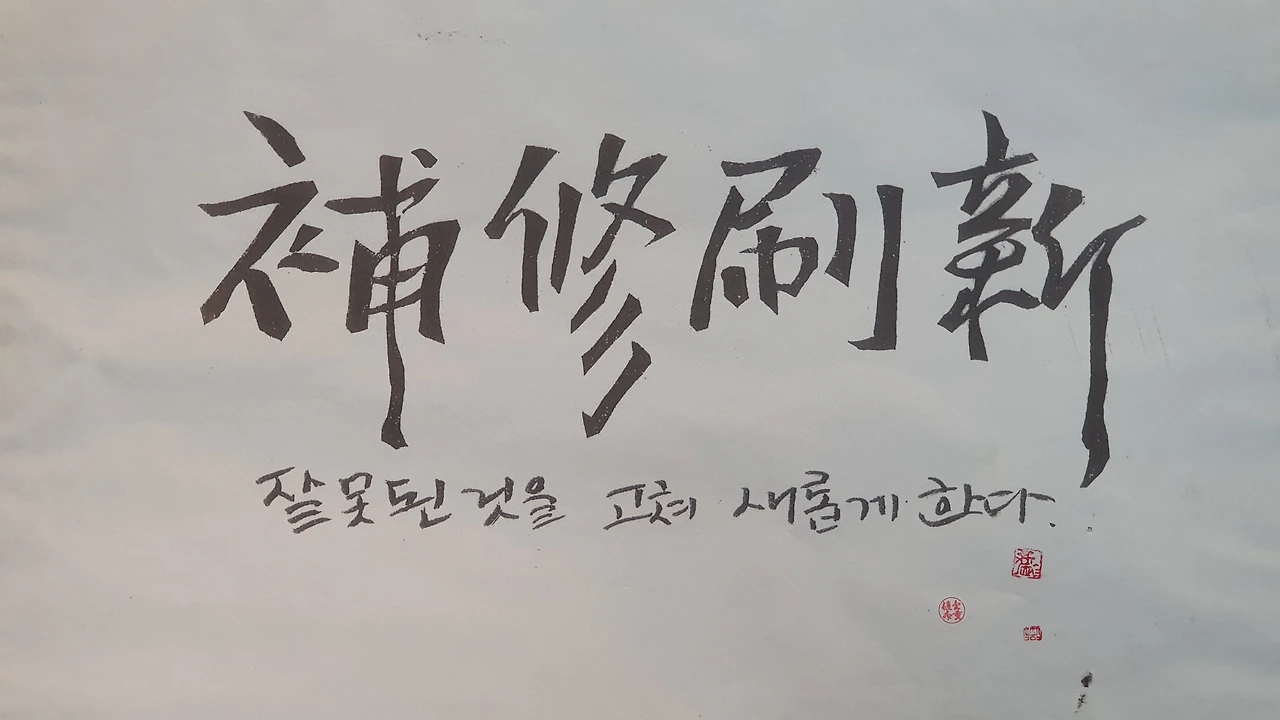 補修刷新
잘못된 것을 고쳐 새롭게 한다.